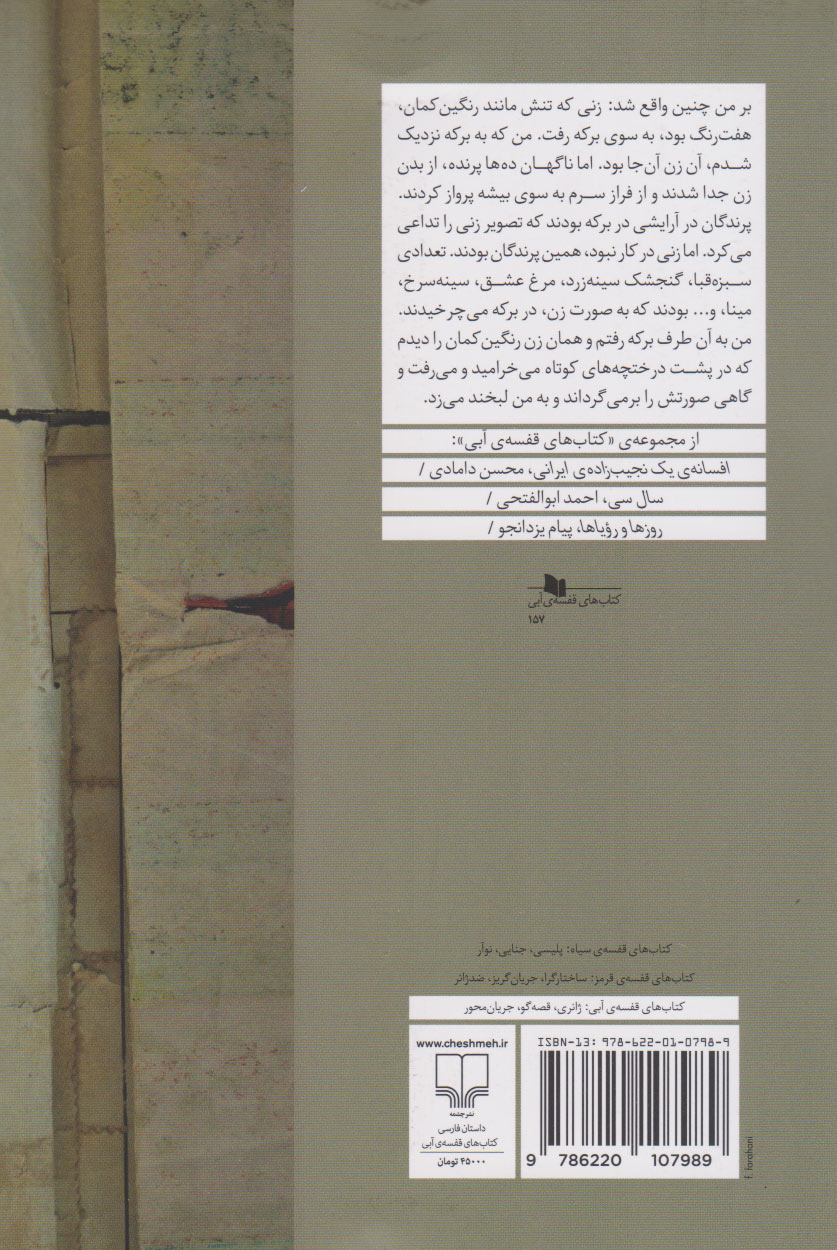 بر من چنین واقع شد: زنی که تنش مانند رنگین‌کمان،
هفت‌رنگ بود، به سوی برکه رفت. من که به برکه نزدیک
شدم، آن زن آن‌جا بود. اما ناگهان ده‌ها پرنده، از بدن
زن جدا شدند و از فراز سرم به سوی بیشه پرواز کردند.
پرندگان در آرایشی در برکه بودند که تصویر زنی را تداعی
می‌کرد. اما زنی در کار نبود، همین پرندگان بودند. تعدادی
سبزه‌قبا، گنجشک سینه‌زرد، مرغ عشق، سینه‌سرخ،
مینا، و... بودند که به صورت زن، در برکه می‌چرخیدند.
من به آن طرف برکه رفتم و همان زن رنگین‌کمان را دیدم
که در پشت درختچه‌های کوتاه می‌خرامید و می‌رفت و
گاهی صورتش را برمی‌گرداند و به من لبخند می‌زد.
از مجموعه‌ی «کتاب‌های قفسه‌ی آبی»:
افسانه‌ی یک نجیب‌زاده‌ی ایرانی، محسن دامادی /
سال سی، احمد ابوالفتحی /
روزها و رؤیاها، پیام یزدانجو /
کتاب‌های قفسه‌ی آبی
۱۵۷
کتاب‌های قفسه‌ی سیاه: پلیسی، جنایی، نوآر
کتاب‌های قفسه‌ی قرمز: ساختارگرا، جریان‌گریز، ضدژانر
کتاب‌های قفسه‌ی آبی: ژانری، قصه‌گو، جریان‌محور
ISBN-13: 978-622-01-0798-9
9 786220 107989
www.cheshmeh.ir
نشرچشمه
داستان فارسی
کتاب‌های قفسه‌ی آبی
۴۵۰۰۰ تومان
f. farahani